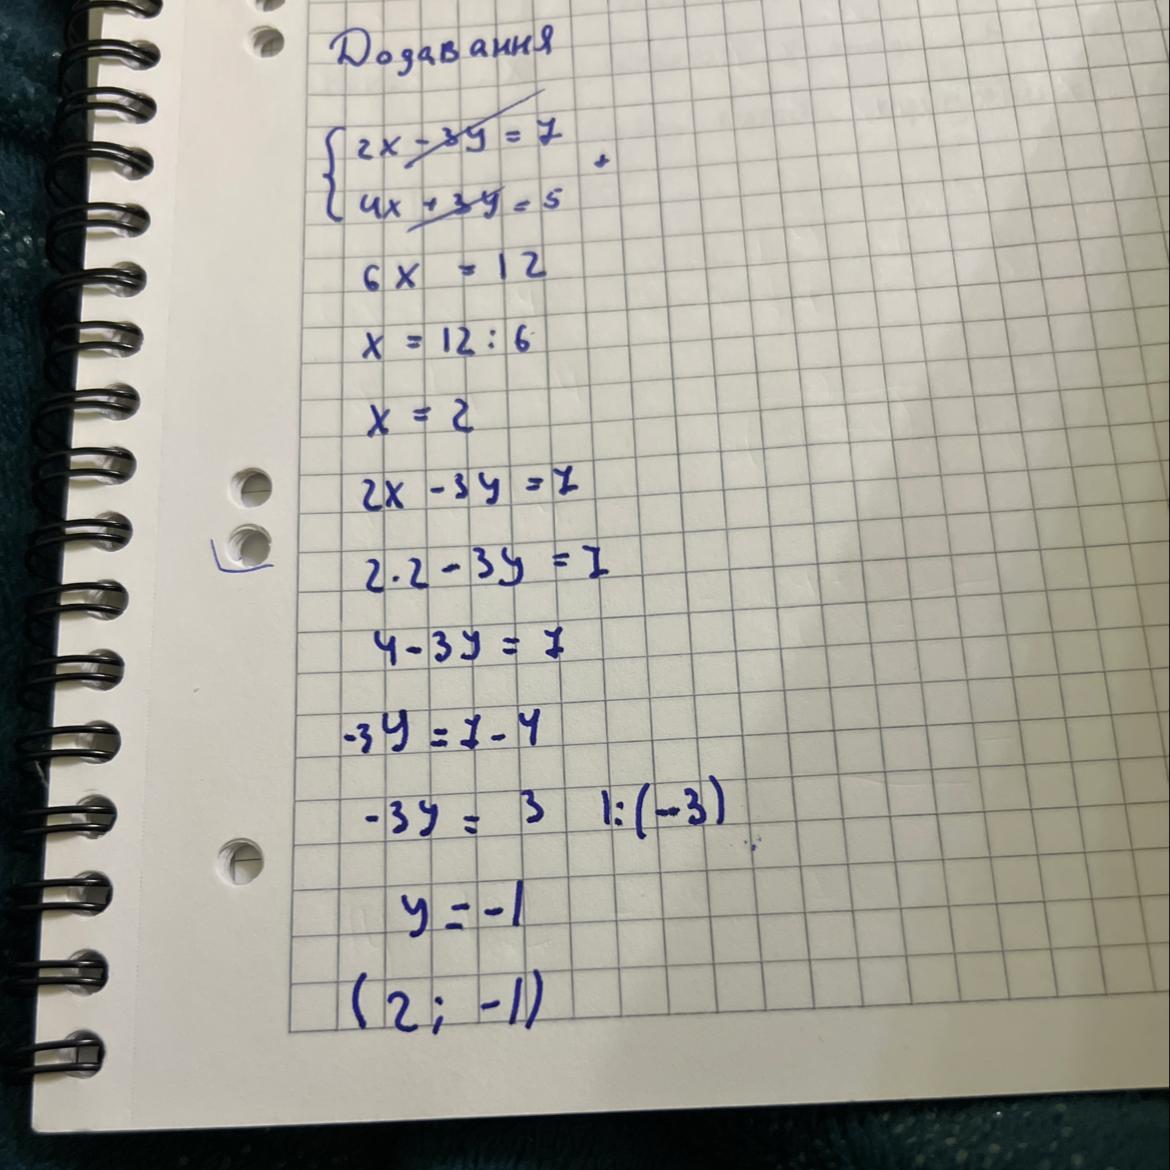 Додавання
{ 2x - 3y = 7
4x + 3y = 5 +
6x = 12
x = 12 : 6
x = 2
2x - 3y = 7
2 · 2 - 3y = 7
4 - 3y = 7
-3y = 7 - 4
-3y = 3 |: (-3)
y = -1
(2; -1)